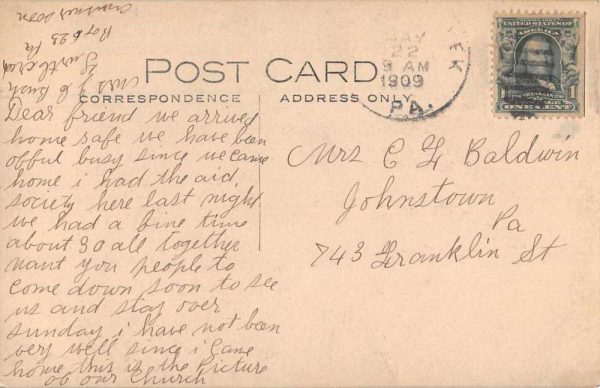 POST CARD
CORRESPONDENCE
ADDRESS ONLY
MAY
22
9 AM
1909
PA.
EK
ONE CENT
1
Dear friend we arrived
home safe we have been
offul busy since we came
home i had the aid
society here last night
we had a fine time
about 30 all together
want you people to
come down soon to see
us and stay over
sunday i have not been
very well since i came
home this is the Picture
of our Church
Box 623
Pa
soon
Mrs C F Baldwin
Johnstown
Pa
743 Franklin St